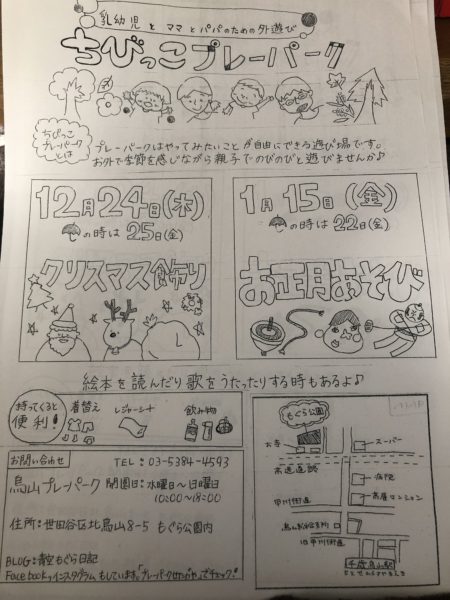 乳幼児とママとパパのための外遊び
ちびっこプレーパーク
ちびっこプレーパークとは
プレーパークはやってみたいことが自由にできる遊び場です。
お外で季節を感じながら親子でのびのびと遊びませんか♪
12月24日(木)
の時は25日(金)
クリスマス飾り
1月15日(金)
の時は22日(金)
お正月あそび
絵本を読んだり歌をうたったりする時もあるよ♪
持ってくると便利!
着替え
レジャーシート
飲み物
お問い合わせ
TEL:03-5384-4593
烏山プレーパーク 開園日:水曜日〜日曜日
10:00〜18:00
住所:世田谷区北烏山8-5 もぐら公園内
BLOG:青空もぐら日記
Facebook、インスタグラムもしています。「プレーパークせたがや」でチェック!
もぐら公園
お寺
スーパー
水道道路
病院
甲州街道
旧甲州街道
千歳烏山駅